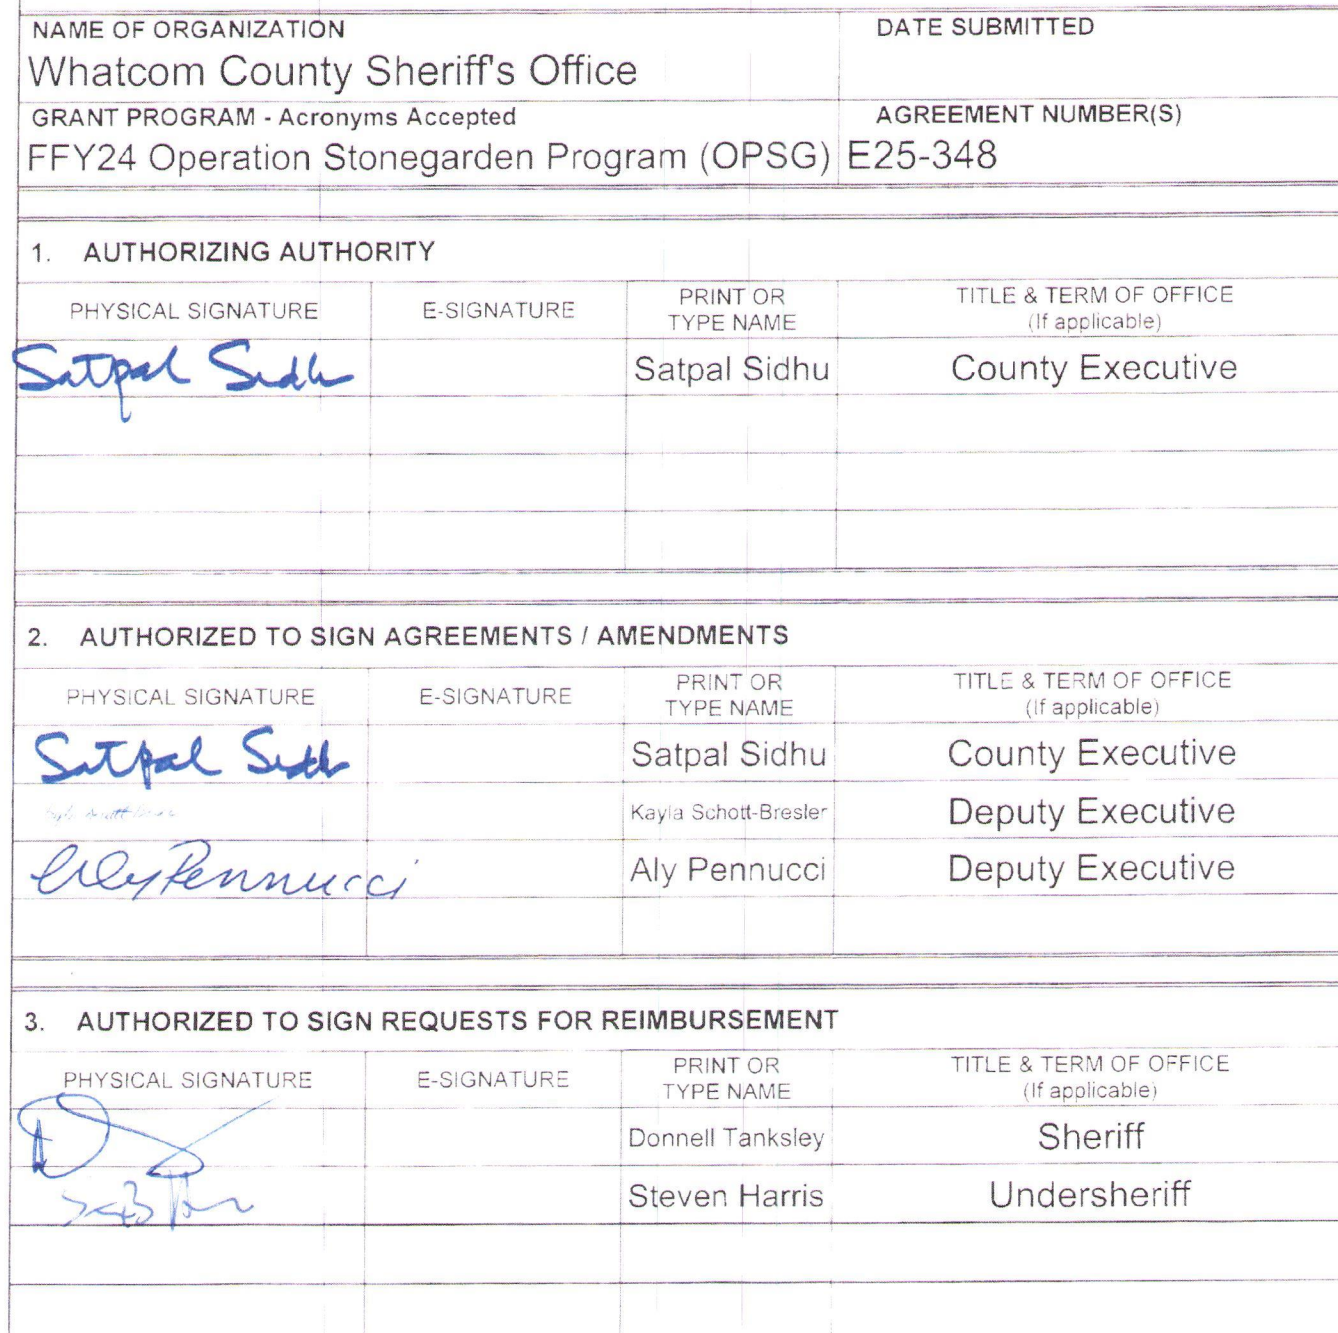 NAME OF ORGANIZATION DATE SUBMITTED
Whatcom County Sheriff's Office
GRANT PROGRAM - Acronyms Accepted AGREEMENT NUMBER(S)
FFY24 Operation Stonegarden Program (OPSG) E25-348
1. AUTHORIZING AUTHORITY
PHYSICAL SIGNATURE E-SIGNATURE PRINT OR TYPE NAME TITLE & TERM OF OFFICE (If applicable)
Satpal Sidhu Satpal Sidhu County Executive
2. AUTHORIZED TO SIGN AGREEMENTS / AMENDMENTS
PHYSICAL SIGNATURE E-SIGNATURE PRINT OR TYPE NAME TITLE & TERM OF OFFICE (If applicable)
Satpal Sidhu Satpal Sidhu County Executive
Kayla Schott-Bresler Deputy Executive
Aly Pennucci Aly Pennucci Deputy Executive
3. AUTHORIZED TO SIGN REQUESTS FOR REIMBURSEMENT
PHYSICAL SIGNATURE E-SIGNATURE PRINT OR TYPE NAME TITLE & TERM OF OFFICE (If applicable)
Donnell Tanksley Sheriff
Steven Harris Undersheriff